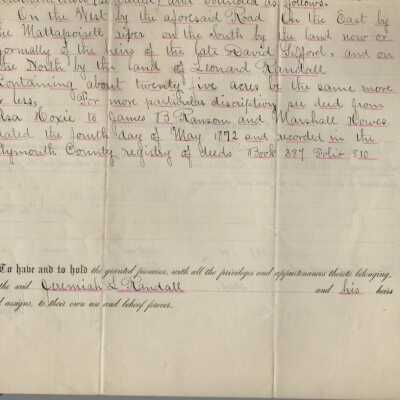 and bounded as follows.
On the West by the aforesaid Road On the East by
the Mattapoisett river on the south by the land now or
formally of the heirs of the late David Gifford and on
the North by the land of Leonard Randall
Containing about twenty five acres be the same more
r less, For more particulars discription see deed from
Asa Hoxie to James B Ransom and Marshall Howes
ated the fourth day of May 1872 and recorded in the
lymouth County registry of deeds Book 387 Folio 210
To have and to hold the granted premises, with all the privileges and appurtenances thereto belonging,
the said Jeremiah L Randall and his heirs
d assigns, to their own use and behoof forever.